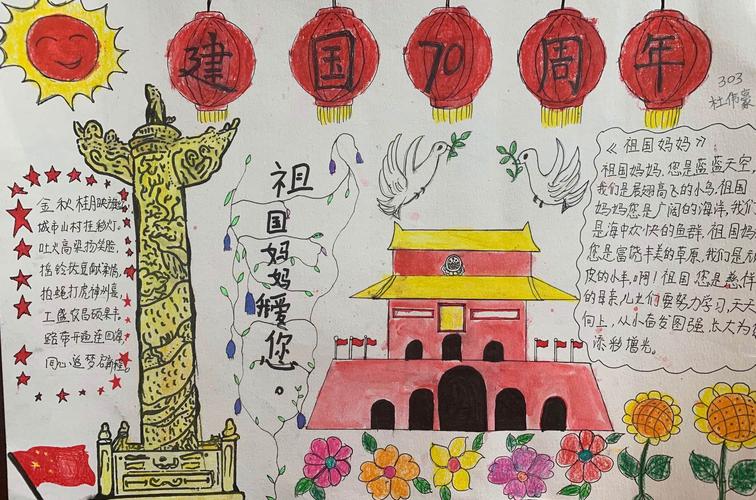 建国70周年
303
杜伟豪
祖国妈妈我爱您。
金秋桂月映
城市山村挂彩灯。
吐火高梁扬笑脸，
摇铃
拍蝇打虎神州晏，
工盛农昌硕果丰。
路带开通
同心追梦
《祖国妈妈》
祖国妈妈，您是蓝蓝天空，
我们是展翅高飞的小鸟。祖国
妈妈您是广阔的海洋，我们
是海中欢快的鱼群。祖国妈
您是富饶丰美的草原，我们是
皮的小羊，啊！祖国您是慈祥
的母亲儿女们要努力学习，天天
向上，从小奋发图强，长大为
添彩增光。